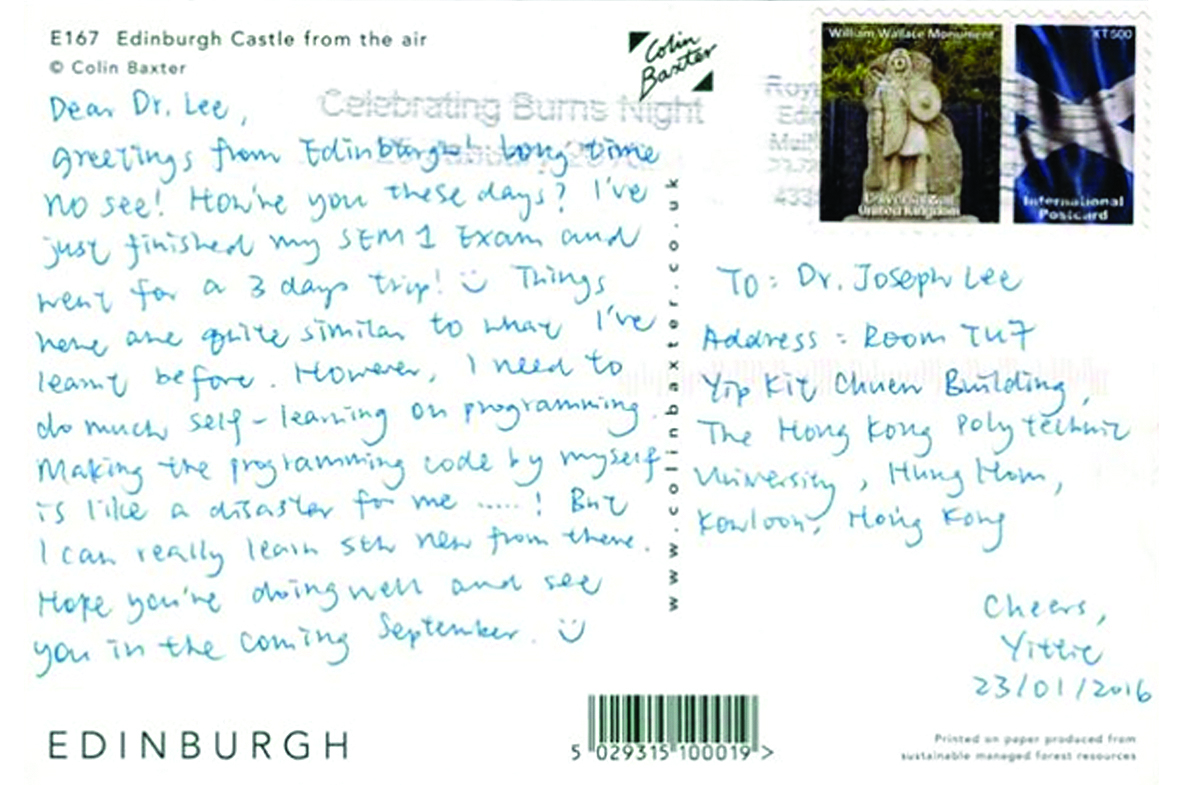 E167 Edinburgh Castle from the air
© Colin Baxter
Colin
Baxter
Dear Dr. Lee,
Celebrating Burns Night
Greetings from Edinburgh! Long time
no see! How're you these days? I've
just finished my SEM 1 Exam and
went for a 3 days trip! Things
here are quite similar to what I've
learnt before. However, I need to
do much self-learning on programming.
Making the programming code by myself
is like a disaster for me .....! But
I can really learn sth new from there.
Hope you're doing well and see
you in the coming September.
www.colinbaxter.co.uk
William Wallace Monument
United Kingdom
KT500
International
Postcard
To: Dr. Joseph Lee
Address: Room TU7
Yip Kit Chuen Building,
The Hong Kong Polytechnic
University, Hung Hom,
Kowloon, Hong Kong
Cheers,
Yittie
23/01/2016
EDINBURGH
5 029315 100019 >
Printed on paper produced from
sustainable managed forest resources